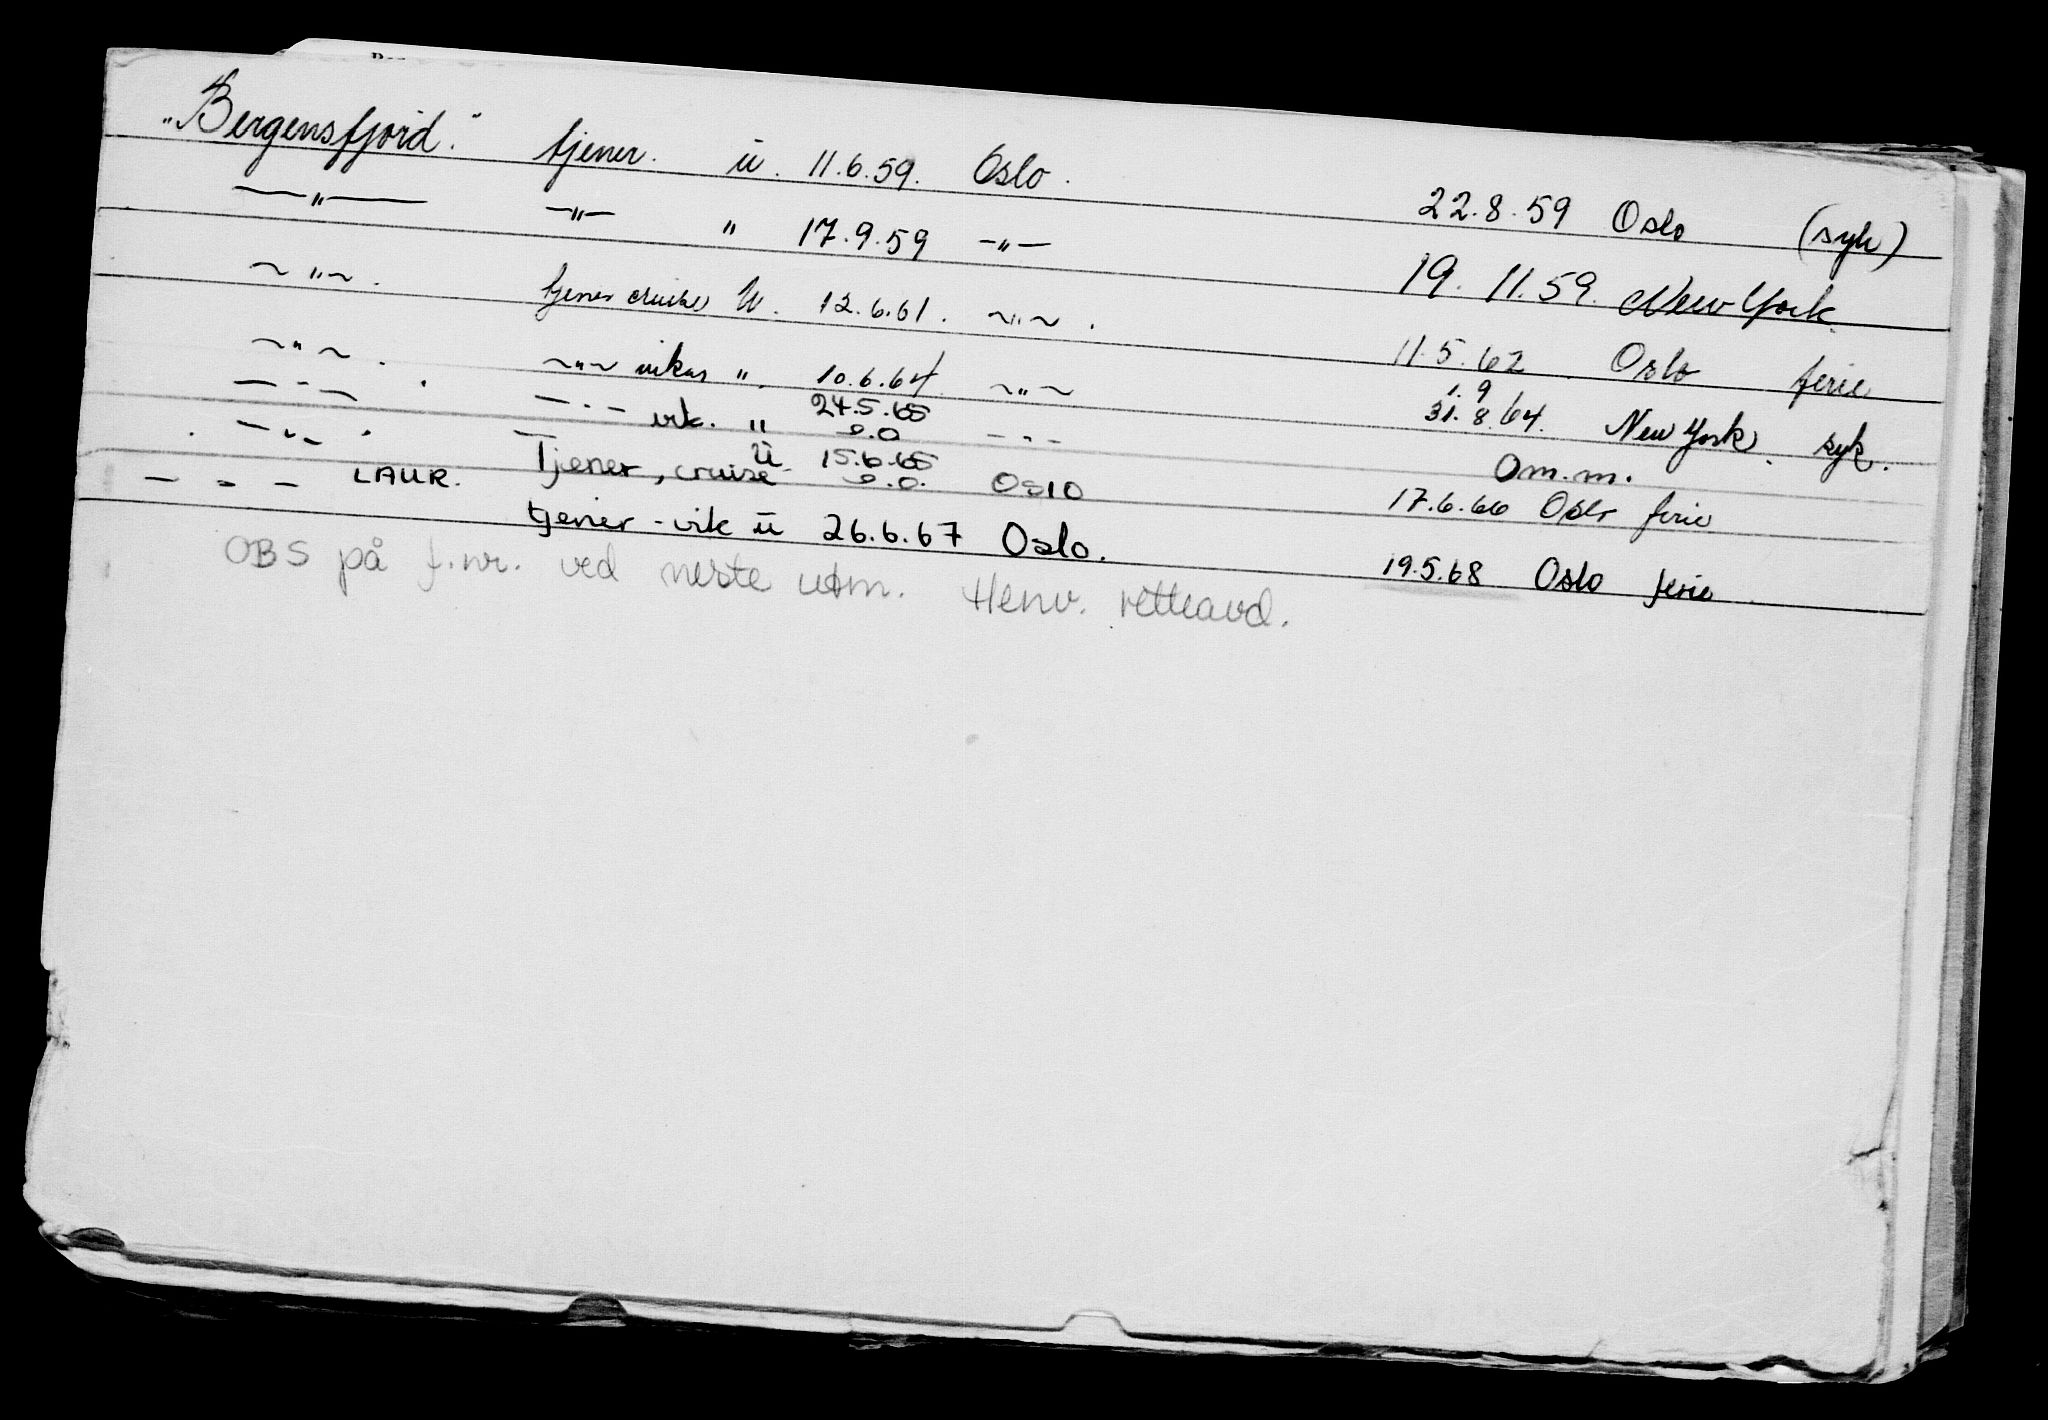 "Bergensfjord." tjener. ü. 11.6.59. Oslo. 22.8.59 Oslo (syk)
—"— —"— " 17.9.59 —"— 19.11.59. New York
~"~. tjener cruise ü. 12.6.61. ~"~. 11.5.62 Oslo ferie
~"~. ~"~ vikar ". 10.6.64. ~"~ 1.9 31.8.64. New York. syk.
—"— . —"— vik. " 24.5.65 e.o —"— Om.m.
—"— . Tjener, cruise ü 15.6.65 e.o. Oslo 17.6.66 Oslo ferie
—"— LAUR. tjener-vik ü 26.6.67 Oslo. 19.5.68 Oslo ferie
OBS på f.nr. ved neste utm. Henv. retteavd.